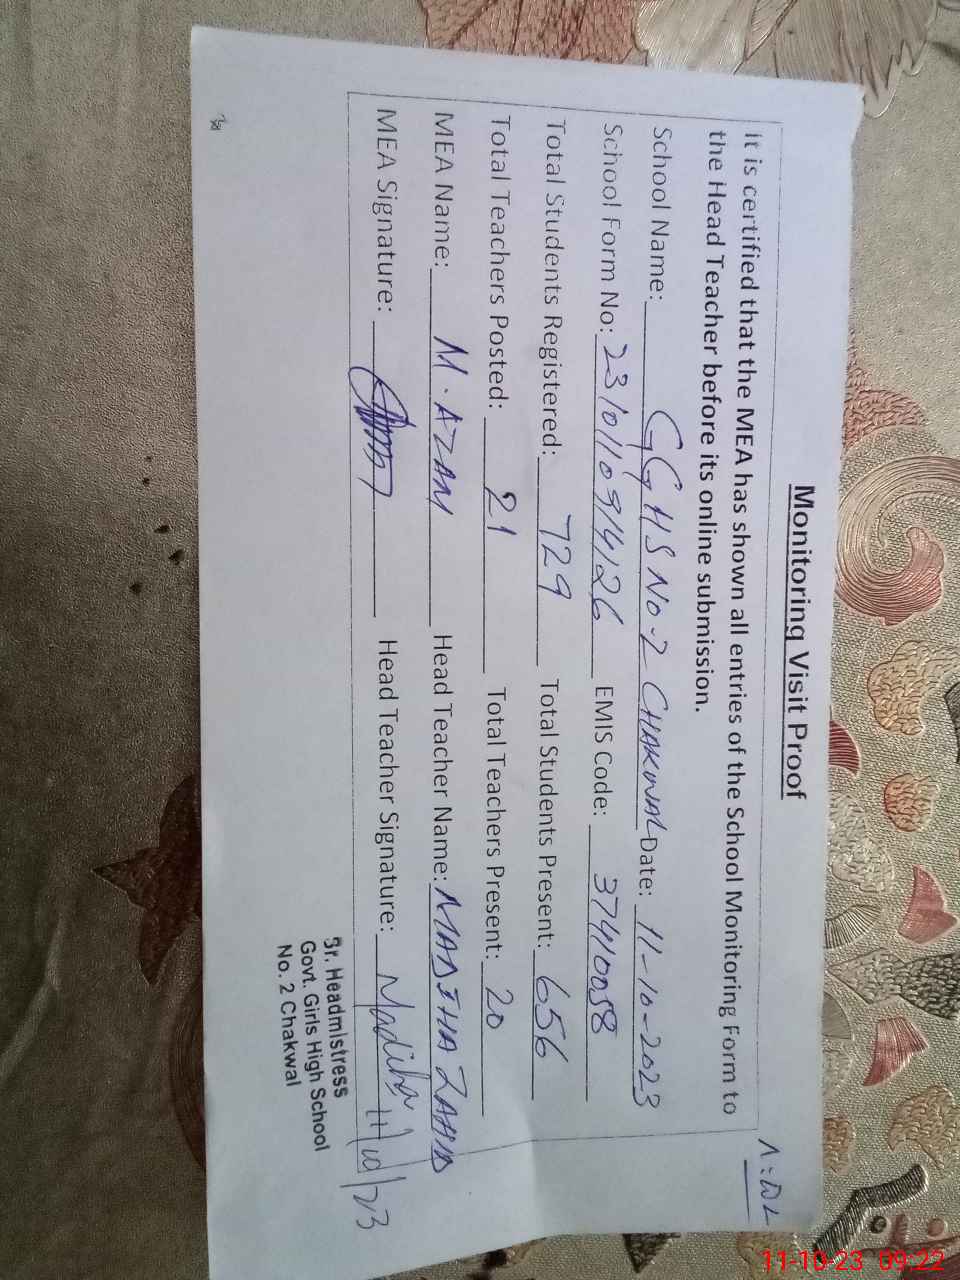 Monitoring Visit Proof
It is certified that the MEA has shown all entries of the School Monitoring Form to
the Head Teacher before its online submission.
School Name: GGHS NO-2 CHAKWAL Date: 11-10-2023
School Form No: 2310110914126 EMIS Code: 37410058
Total Students Registered: 729 Total Students Present: 656
Total Teachers Posted: 21 Total Teachers Present: 20
MEA Name: M. AZAM Head Teacher Name: MADIHA ZAHID
MEA Signature: Head Teacher Signature: Madiha 11/10/23
Sr. Headmistress
Govt. Girls High School
No. 2 Chakwal
11-10-23 09:22